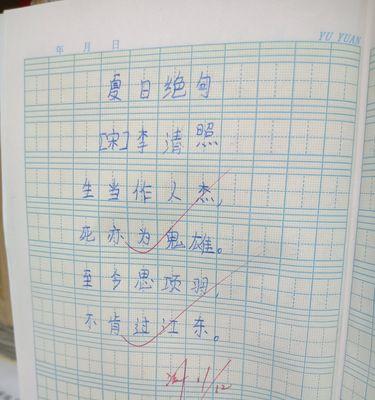 YU YUAN
年 月 日
夏日绝句
[宋]李清照
生当作人杰,
死亦为鬼雄。
至今思项羽,
不肯过江东。
11/12